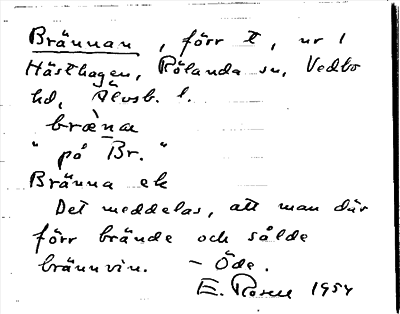 Brännan, förr tt, nr 1
Hästhagen, Rölanda sn, Vedbo
hd, Älvsb. l.
bræ̀na
"på Br."
Bränna ek
Det meddelas, att man där
förr brände och sålde
brännvin. – Öde.
E. Rosell 1954